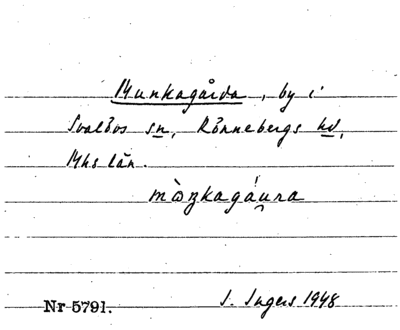 Munkagårda, by i
Svalövs sn, Rönnebergs hd,
Mhs län.
mɷ̀ŋkagáu̯ra
Nr 5791. I. Ingers 1948